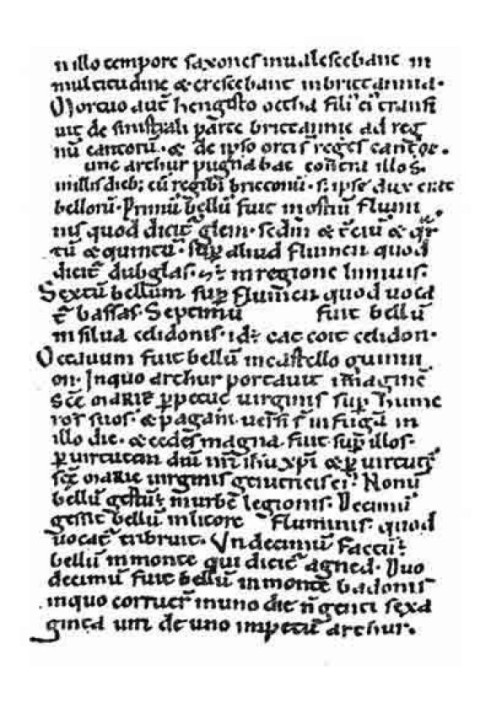 n illo tempore saxones inualescebant in
multitudine & crescebant in brittannia.
Mortuo aut̄ hengisto octha fili' ei' transi
uit de sinist̄ali parte brittannie ad reg
nū cantorū. & de ipso orti sꝰ reges cantoꝝ.
unc arthur pugnabat contra illos.
in illis dieb; cū regib; brittonū. s; ipse dux erat
bellorū. Primū bellū fuit in ostiū flumi
nis quod dicit̄ glein. sedm̄ & t̄ciū & qr̄
tū & quintū. sup̄ aliud flumen quod
dicit̄ dubglas. & ē in regione linnuis.
Sextū bellum sup̄ flumen quod uoca
t̄ bassas. Septimū fuit bellū
in silua celidonis. id ē cat coit celidon.
Octauum fuit bellū in castello guinni
on. In quo arthur portauit imaginē
scē mariē ꝑpetue uirginis sup̄ hume
ros suos. & pagani uersi s̄ in fugā in
illo die. & cedes magna fuit sup̄ illos.
ꝑ uirtutem dn̄i nr̄i ih̄u xp̄i & ꝑ uirtutē
scē mariē uirginis genitricis ei'. Nonū
bellū gestū ē in urbe legionis. Decimū
gessit bellū in litore fluminis. quod
uocat̄ tribruit. Undecimū factū ē
bellū in monte qui dicit̄ agned. Duo
decimū fuit bellū in monte badonis
in quo corruer̄ in uno die n̄genti sexa
ginta uiri de uno impetu arthur.